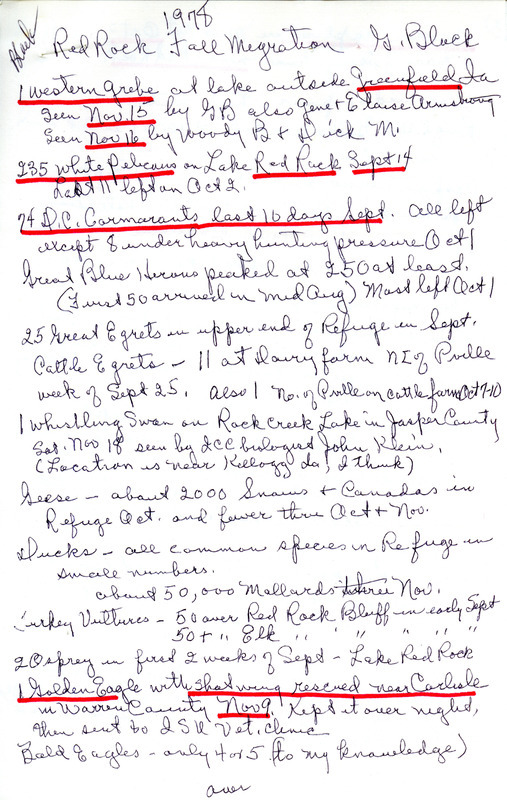 1978
Black
Red Rock Fall Megration G. Black
1 western grebe at lake outside Greenfield, Ia
seen Nov. 15 by GB also Gene & Eloise Armstrong
seen Nov 16 by Woody B & Dick M.
235 White Pelicans on Lake Red Rock Sept 14
Last 11 left on Oct 2.
74 D.C. Cormorants last 10 days Sept. all left
except 8 under heavy hunting pressure Oct 1
Great Blue Herons peaked at 250 at least.
(First 50 arrived in mid Aug) Most left Oct 1
25 Great Egrets in upper end of Refuge in Sept.
Cattle Egrets - 11 at dairy farm NE of Pville
week of Sept 25. also 1 No. of Pville on cattle farm Oct 7-10
1 Whistling Swan on Rock creek Lake in Jasper County
Sat. Nov 18 seen by ICC biologist John Klein.
(Location is near Kellogg Ia, I think)
Geese - about 2000 Snows & Canadas in
Refuge Oct. and fewer thru Oct & Nov.
Ducks - all common species in Refuge in
small numbers.
about 50,000 Mallards thru Nov.
Turkey Vultures - 50 over Red Rock Bluff in early Sept
50+ " Elk " " " " "
2 Osprey in first 2 weeks of Sept - Lake Red Rock
1 Golden Eagle with shot wing rescued near Carlisle
in Warren County Nov 9. Kept it over night,
then sent to ISU Vet. clinic
Bald Eagles - only 4 or 5 (to my knowledge)
over